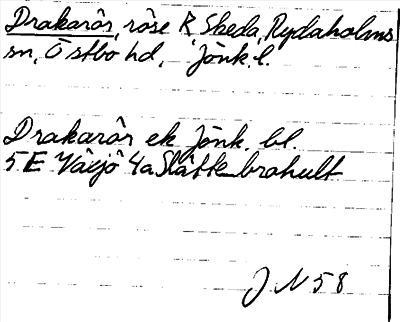 Drakarör, röse R Skeda, Rydaholms
sn, Östbo hd, Jönk. l.
Drakarör ek Jönk. bl.
5E Växjö 4a Slätte brahult
J N 58